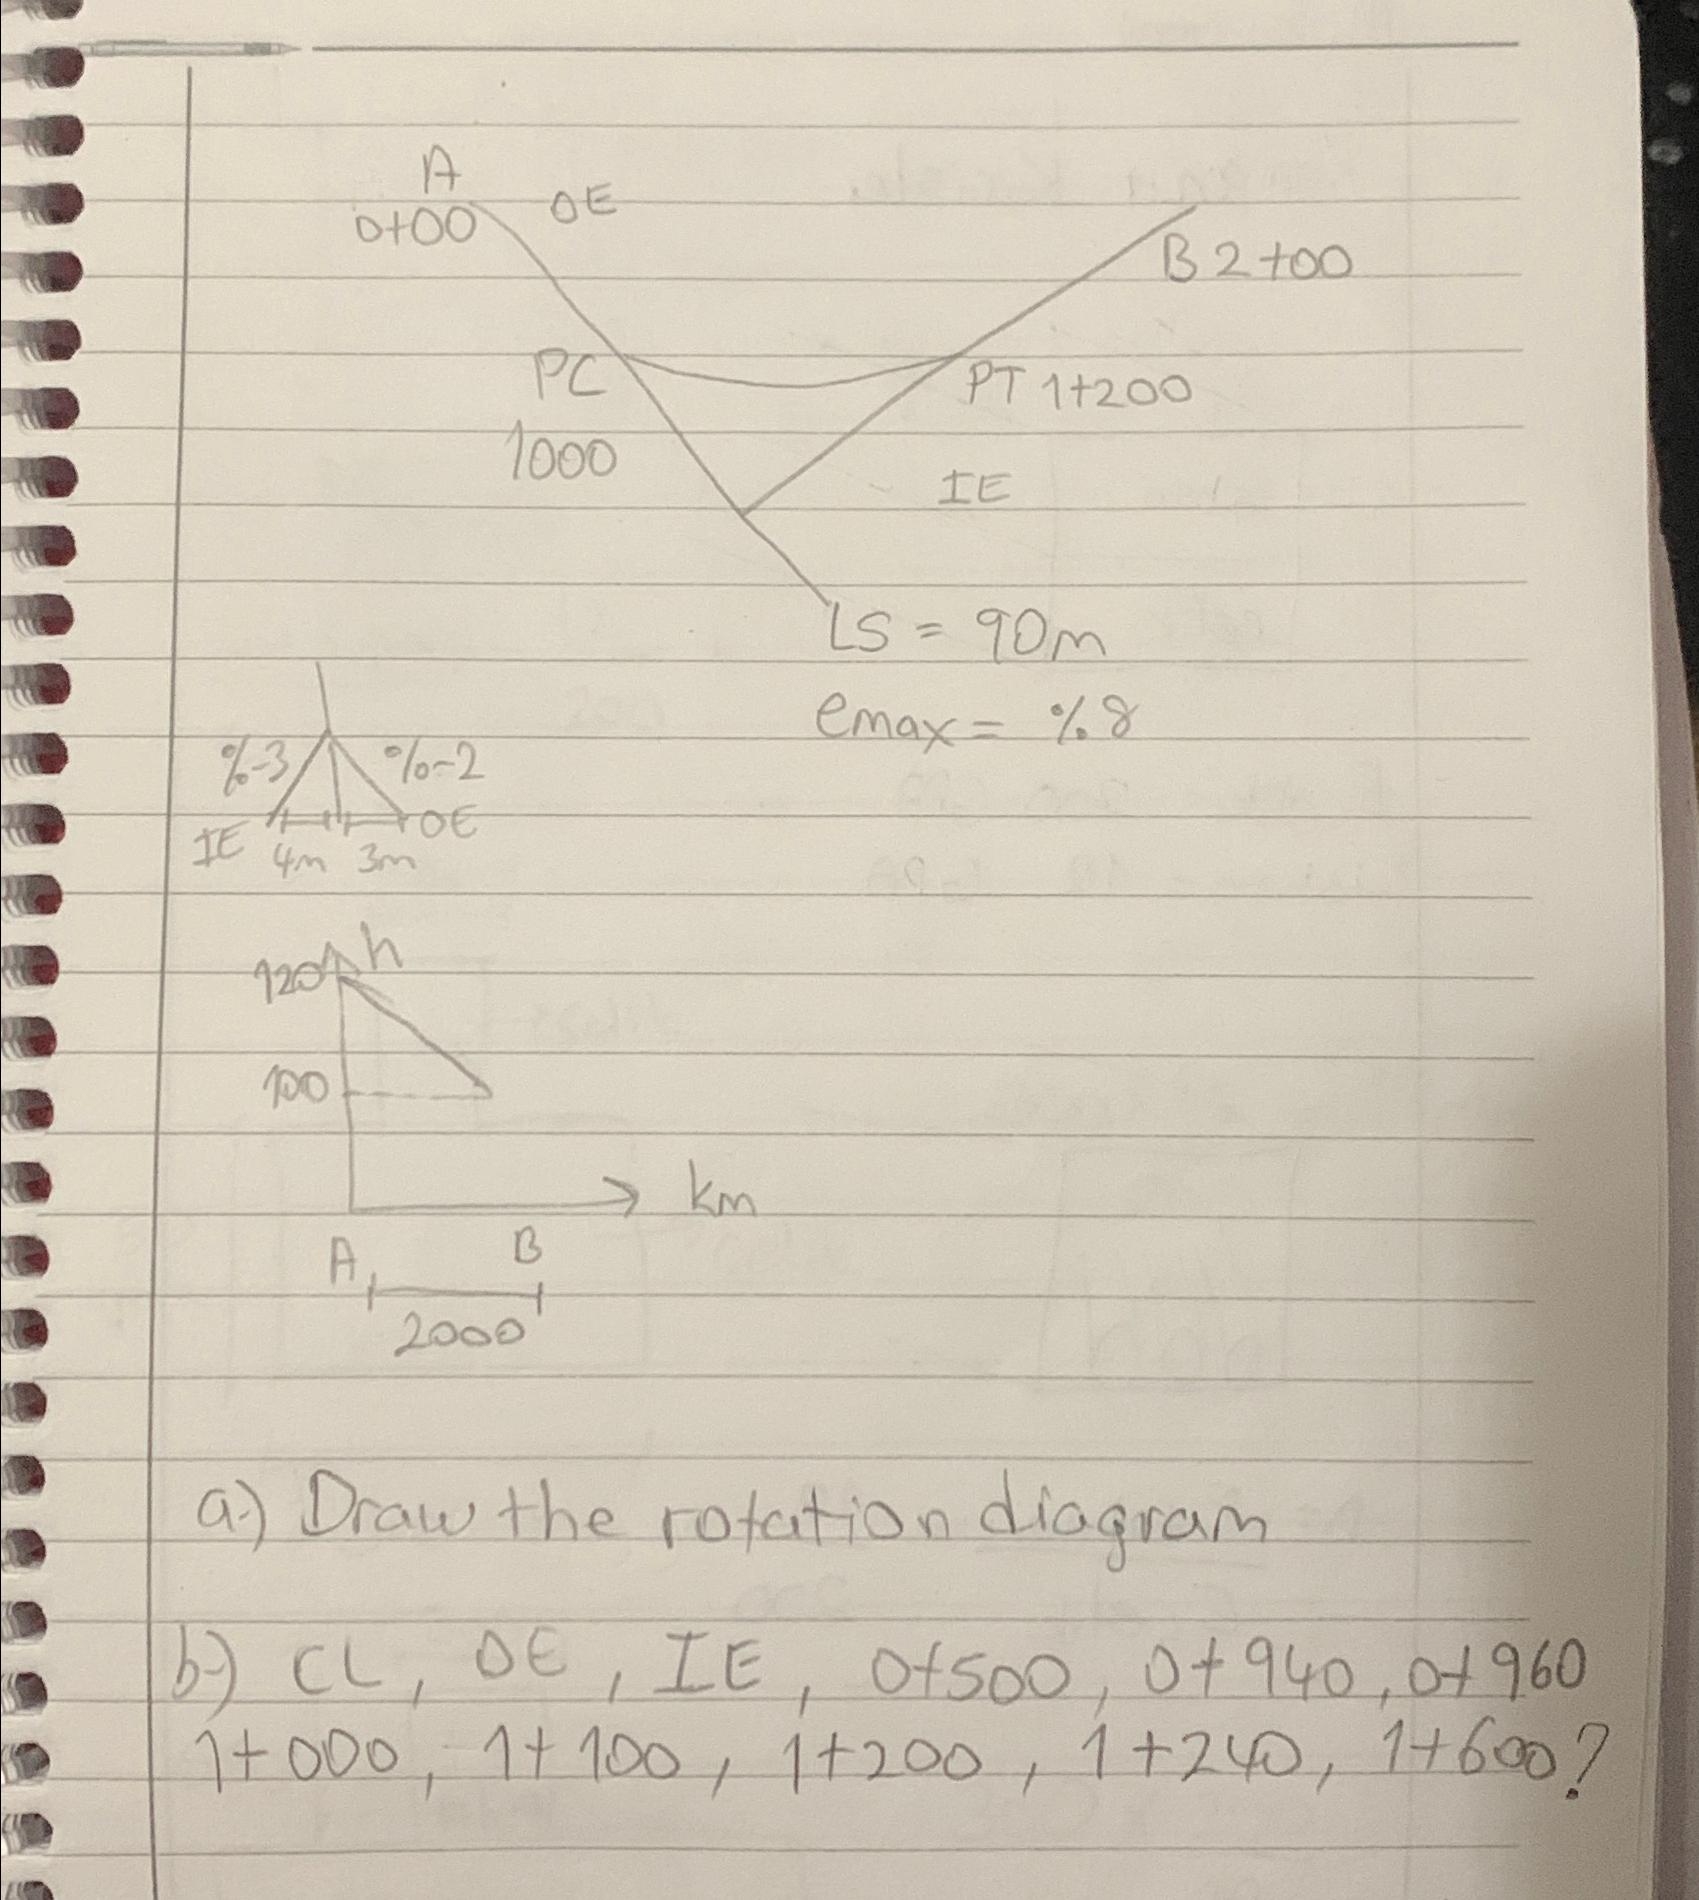 A
0+00 OE
B 2+00
PC
PT 1+200
1000
IE
LS = 90m
emax = %8
%-3 %-2
IE 4m 3m OE
120 h
100
km
A B
2000
a.) Draw the rotation diagram
b-) CL, OE, IE, 0+500, 0+940, 0+960
1+000, 1+100, 1+200, 1+240, 1+600?